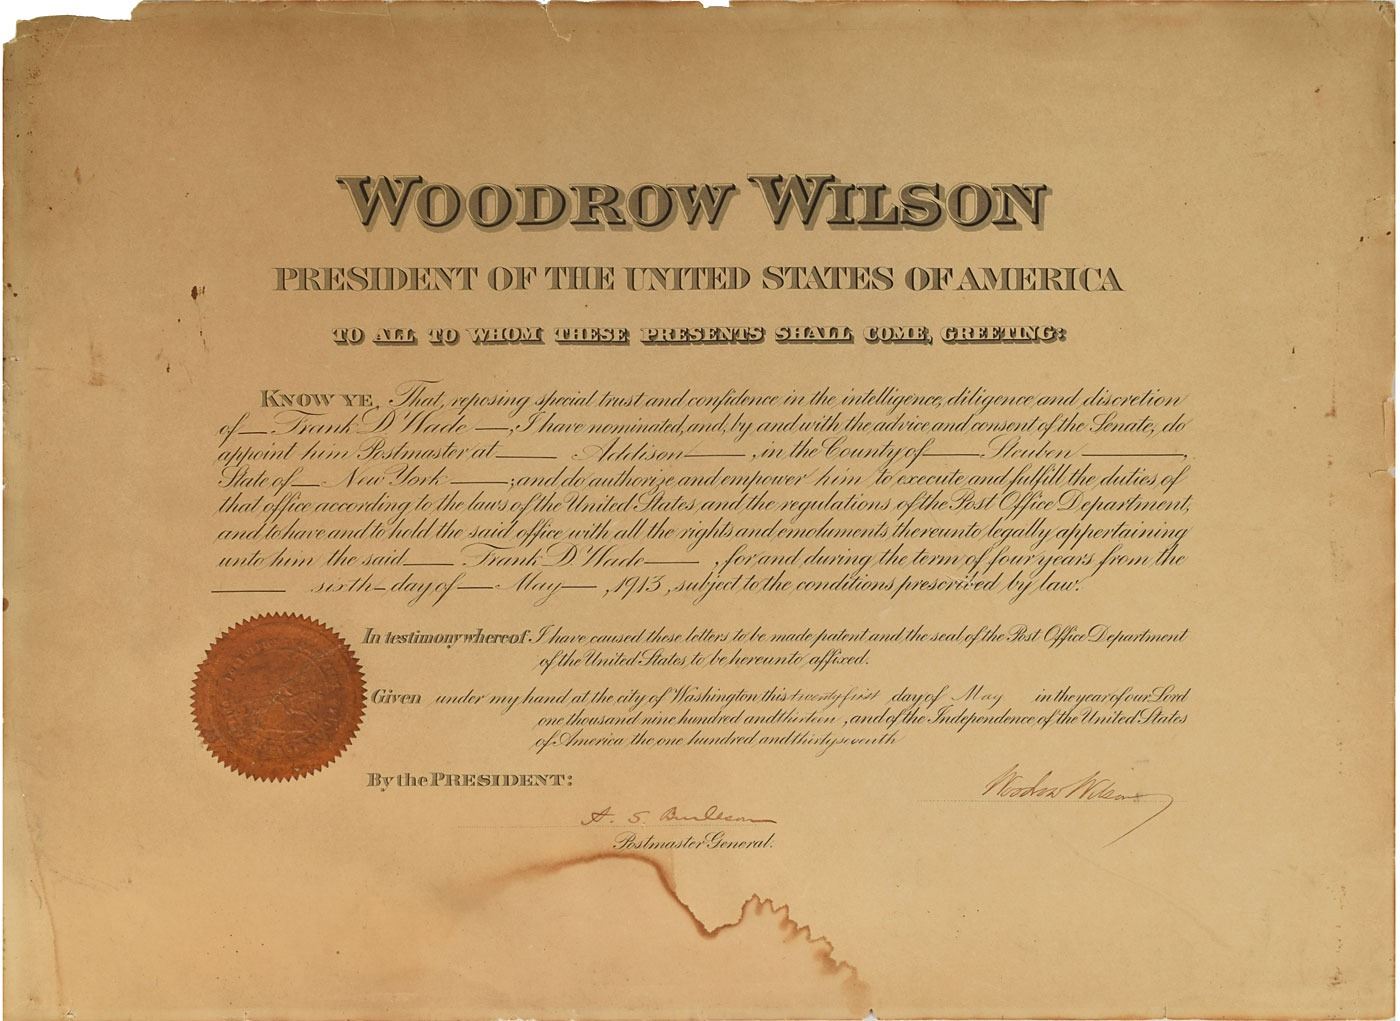 WOODROW WILSON
PRESIDENT OF THE UNITED STATES OF AMERICA
TO ALL TO WHOM THESE PRESENTS SHALL COME, GREETING:
KNOW YE, That, reposing special trust and confidence in the intelligence, diligence, and discretion
of Frank D Wade, I have nominated, and, by and with the advice and consent of the Senate, do
appoint him Postmaster at Addison, in the County of Steuben,
State of New York; and do authorize and empower him to execute and fulfill the duties of
that office according to the laws of the United States and the regulations of the Post Office Department,
and to have and to hold the said office with all the rights and emoluments thereunto legally appertaining
unto him the said Frank D Wade, for and during the term of four years from the
sixth day of May, 1913, subject to the conditions prescribed by law.
In testimony whereof I have caused these letters to be made patent and the seal of the Post Office Department
of the United States to be hereunto affixed.
Given under my hand at the city of Washington this twenty first day of May in the year of our Lord
one thousand nine hundred and thirteen, and of the Independence of the United States
of America the one hundred and thirty seventh
By the PRESIDENT:
Woodrow Wilson
A. S. Burleson
Postmaster General.